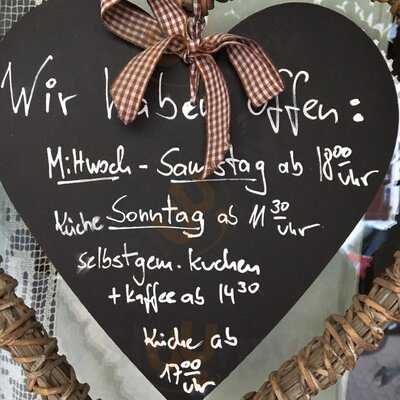 Wir haben offen:
Mittwoch - Samstag ab 18⁰⁰ Uhr
Küche Sonntag ab 11³⁰ Uhr
selbstgem. Kuchen
+ Kaffee ab 14³⁰
Küche ab
17⁰⁰ Uhr